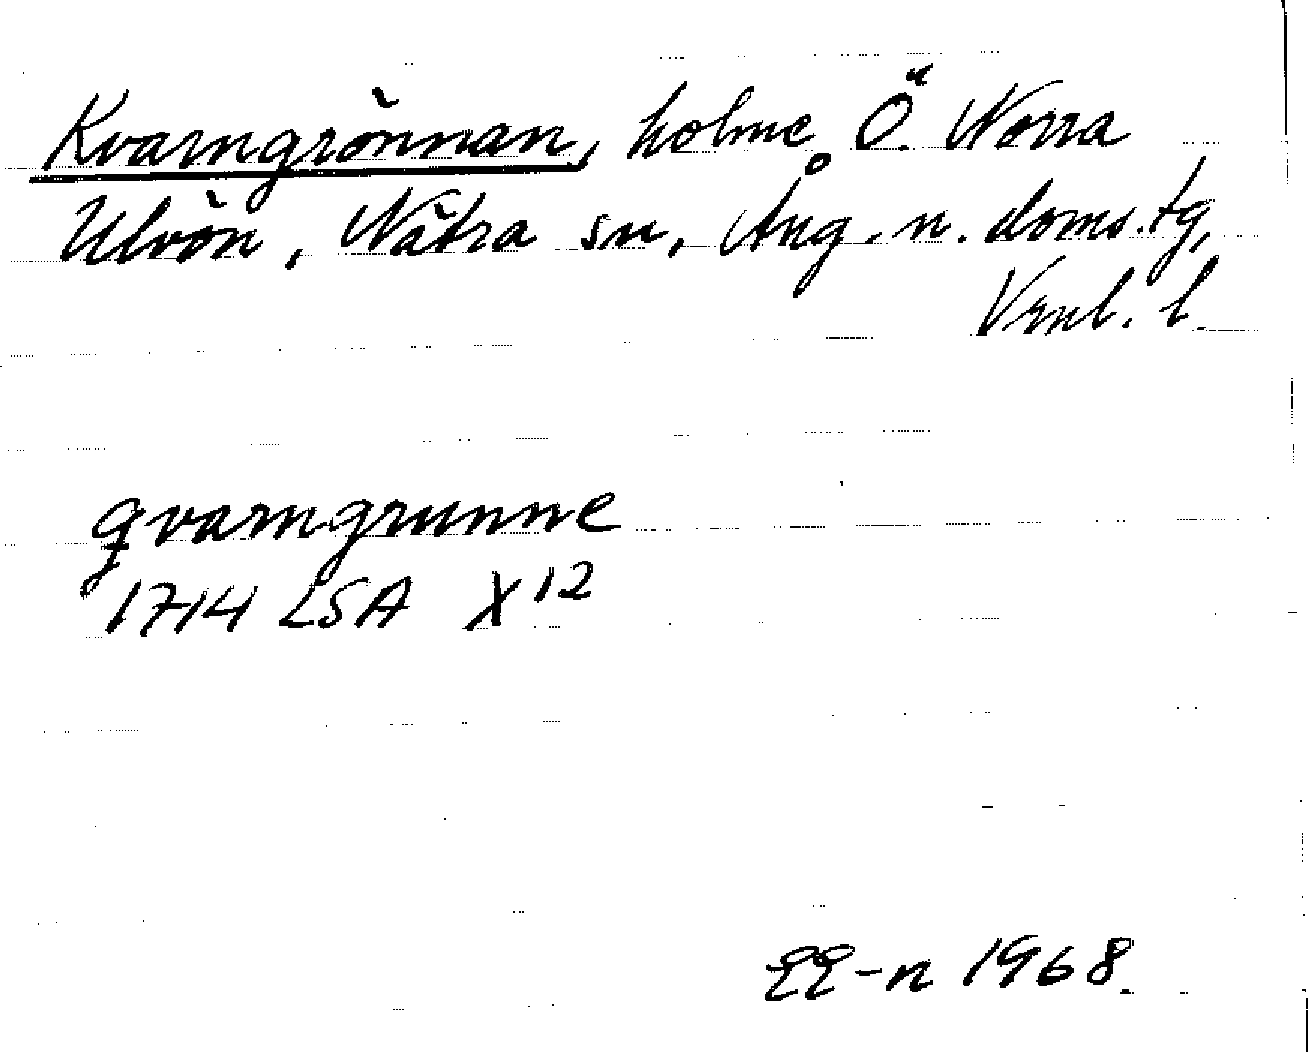 Kvarngrönnan, holme Ö. Norra
Ulvön, Nätra sn, Ång. n. doms. tg,
Vrnl. l.
qvarngrunne
1714 LSA X 12
EE-n 1968.